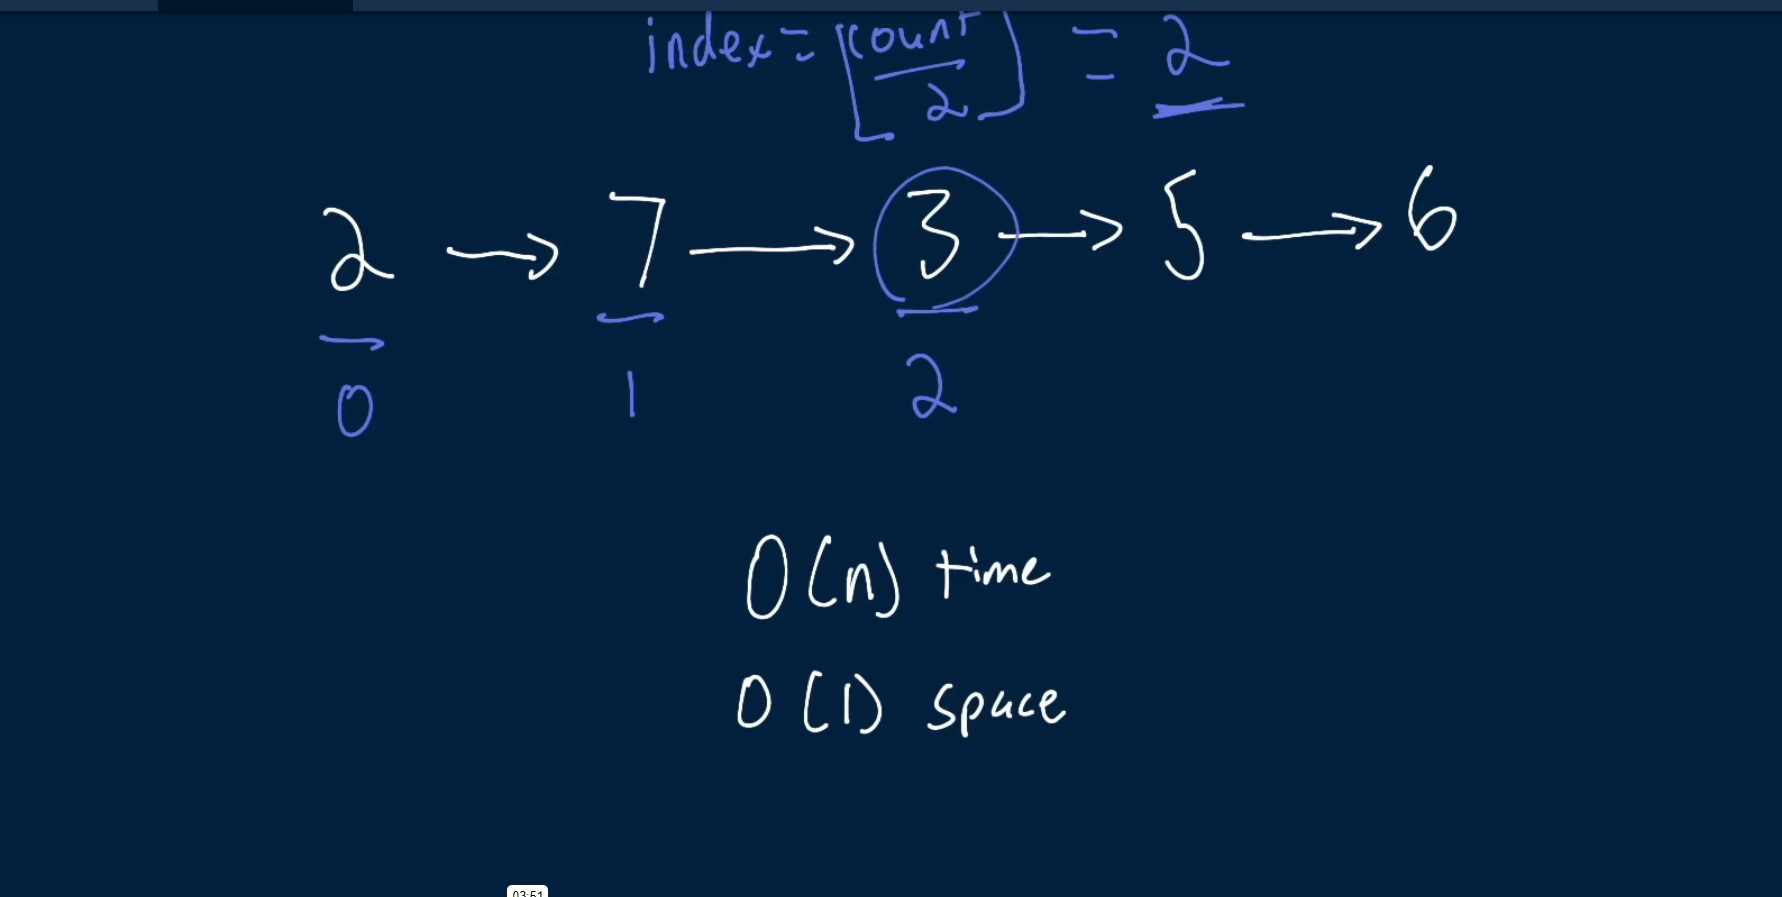 index = ⌊count/2⌋ = 2
2 → 7 → 3 → 5 → 6
0 1 2
O(n) time
O(1) space
03:51